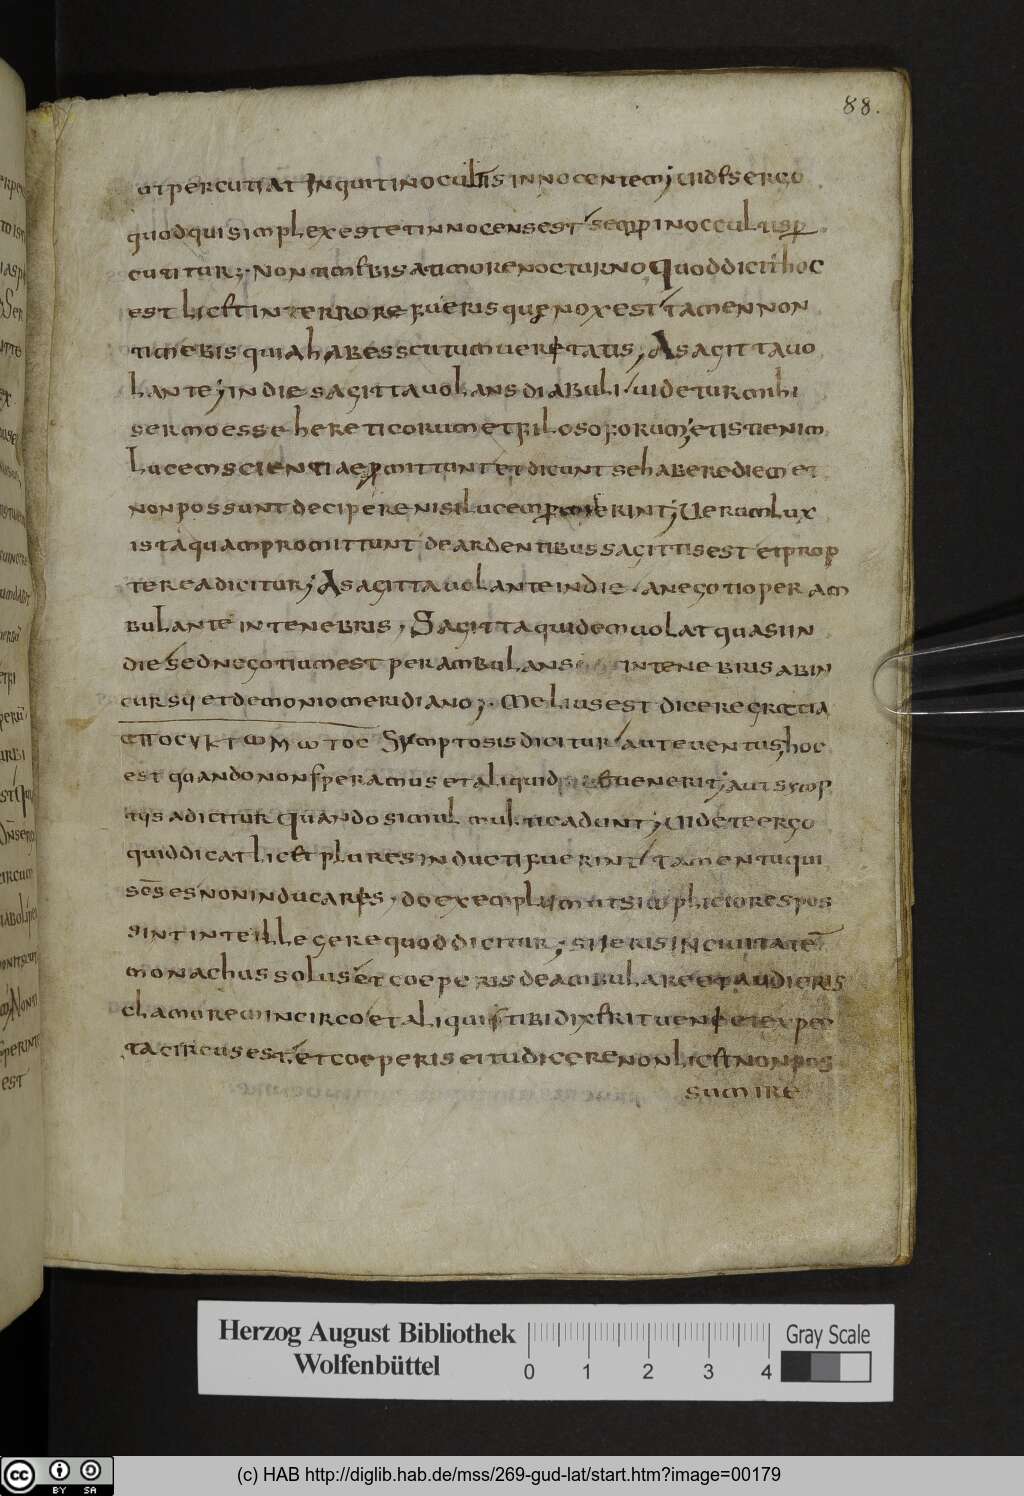 88.
ut percutiat Inquit in ocultis innocentem; Uides ergo
quod qui simplex est et innocens est semp in occultis p
cutitur; Non timebis a timore nocturno Quod dicit hoc
est licet in terrore fueris que nox est tamen non
timebis quia habes scutum ueritatis; A sagitta uo
lante; in die sagitta uolans diabuli uidetur mihi
sermo esse hereticorum et filosoforum; et isti enim
lucem scientiae pmittunt et dicunt se habere diem et
non possunt decipere nisi lucem Uerum lux
ista quam promittunt de ardentibus sagittis est et prop
terea dicitur; A sagitta uolante in die. a negotio per am
bulante in tenebris, Sagitta quidem uolat quasi in
die sed negotium est perambulans in tenebris ab in
cursu et demonio meridiano; Melius est dicere
Symptosis dicitur aut euentus, hoc
est quando non speramus et aliquid uenerit; aut symp
tusis adicitur Quando simul multi cadunt; Uidete ergo
quid dicat licet plures inducti fuerint tamen tu qui
scs es non inducaris, do exemplum ut simpliciores pos
sint intellegere quod dicitur; si ieris In ciuitate
monachus solus et coeperis deambulare et audieris
clamorem in circo et aliquis tibi dixerit ueni et expec
ta circus est. et coeperis ei tu dicere non licet non pos
sum ire
Herzog August Bibliothek
Wolfenbüttel
0 1 2 3 4
Gray Scale
cc BY SA
(c) HAB http://diglib.hab.de/mss/269-gud-lat/start.htm?image=00179